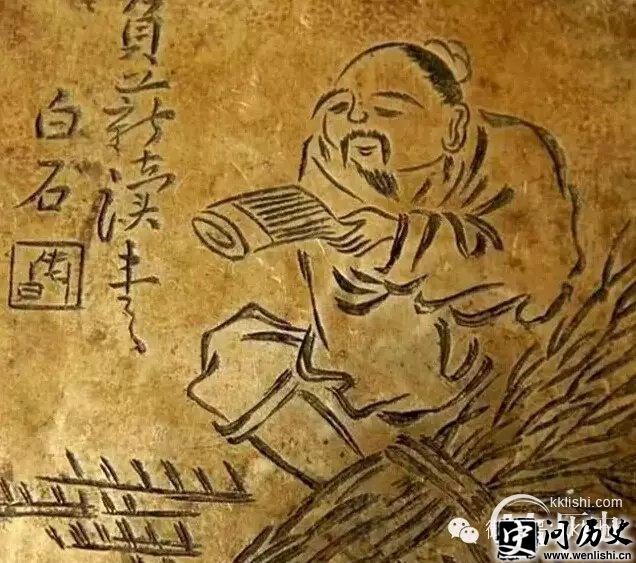 負薪读书
白石
kklishi.com
问历史
www.wenlishi.cn